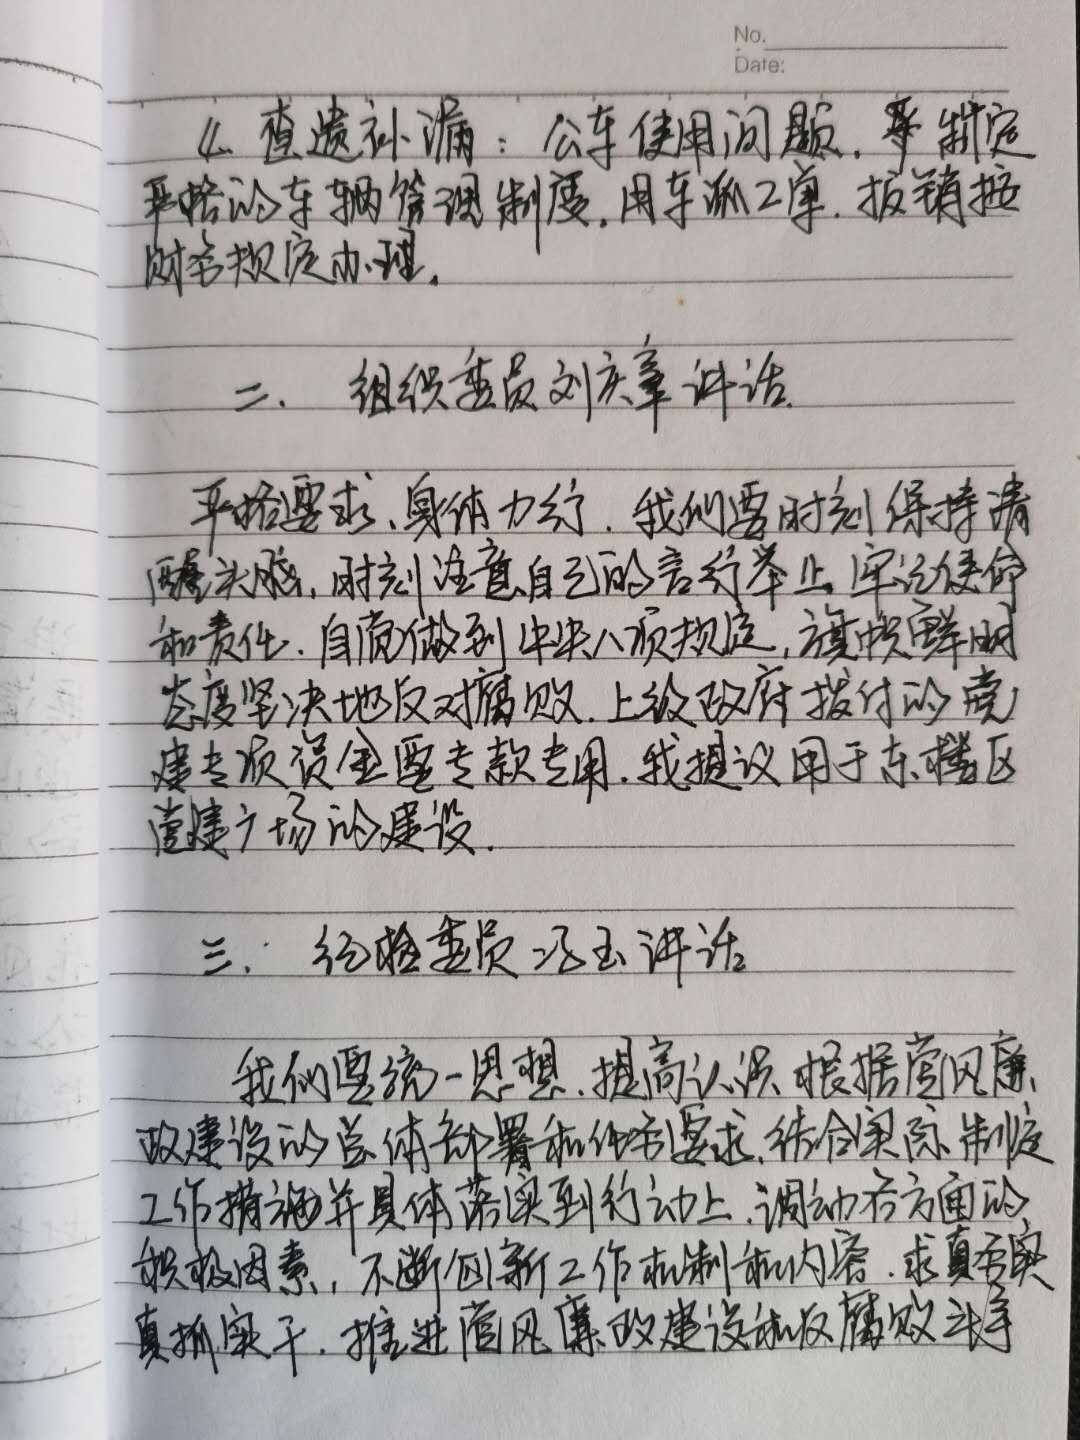 No.
Date:
4. 查遗补漏：公车使用问题，制定
严格的车辆管理制度，用车派工单，报销按
财务规定办理。
二、组织委员刘庆章讲话
严格要求、身体力行，我们要时刻保持清
醒头脑，时刻注意自己的言行举止，牢记使命
和责任，自觉做到中央八项规定，旗帜鲜明
态度坚决地反对腐败，上级政府拨付的党
建专项资金要专款专用，我提议用于东楼区
党建广场的建设。
三、纪检委员冯玉讲话
我们要统一思想，提高认识，根据党风廉
政建设的总体部署和任务要求，结合实际，制定
工作措施并具体落实到行动上，调动各方面的
积极因素，不断创新工作机制和内容，求真务实
真抓实干，推进党风廉政建设和反腐败斗争